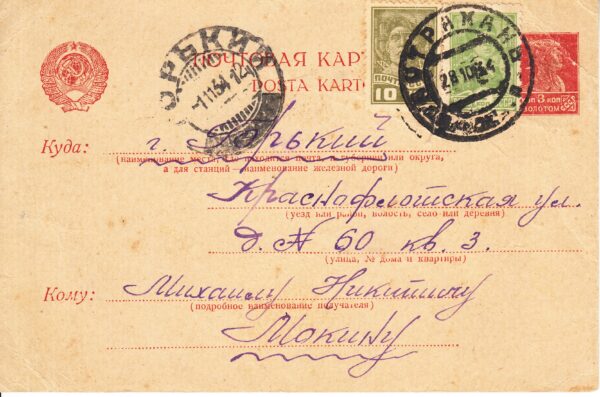 ПОЧТОВАЯ КАР
POSTA KARTO
ГОРЬКИЙ
-1.11.34.12
ПОЧТ
10
АСТРАХАНЬ
28.10.34
3 КОП
ЗОЛОТОМ
Куда: г. Горький
(наименование места, где находится почта, и губернии или округа,
а для станций—наименование железной дороги)
Краснофлотская ул.
(уезд или район, волость, село или деревня)
д. № 60 кв. 3.
(улица, № дома и квартиры)
Кому: Михаилу Никитичу
(подробное наименование получателя)
Мокину